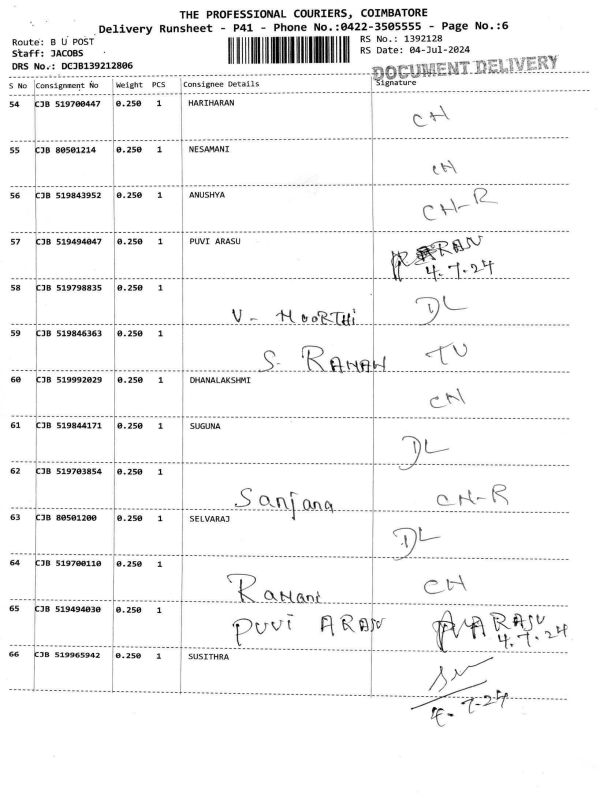 THE PROFESSIONAL COURIERS, COIMBATORE
Delivery Runsheet - P41 - Phone No.:0422-3505555 - Page No.:6
Route: B U POST RS No.: 1392128
Staff: JACOBS RS Date: 04-Jul-2024
DRS No.: DCJB139212806
DOCUMENT DELIVERY
S No Consignment No Weight PCS Consignee Details Signature
54 CJB 519700447 0.250 1 HARIHARAN CN
55 CJB 80501214 0.250 1 NESAMANI CN
56 CJB 519843952 0.250 1 ANUSHYA CN-R
57 CJB 519494047 0.250 1 PUVI ARASU ARASU
4.7.24
58 CJB 519798835 0.250 1 V- MOORTHI DL
59 CJB 519846363 0.250 1 S. RAMAN TV
60 CJB 519992029 0.250 1 DHANALAKSHMI CN
61 CJB 519844171 0.250 1 SUGUNA DL
62 CJB 519703854 0.250 1 Sanjana CN-R
63 CJB 80501200 0.250 1 SELVARAJ DL
64 CJB 519700110 0.250 1 RAMANI CN
65 CJB 519494030 0.250 1 PUVI ARASU ARASU
4.7.24
66 CJB 519965942 0.250 1 SUSITHRA
4.7.24